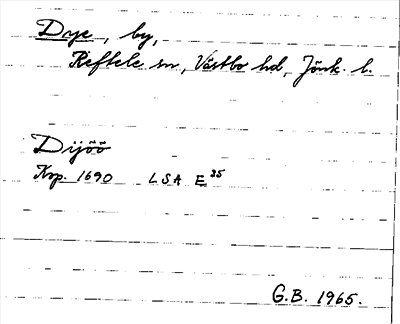 Dye, by,
Reftele sn, Västbo hd, Jönk. l.
Dijöö
Kop. 1690 LSA E 35
G.B. 1965.